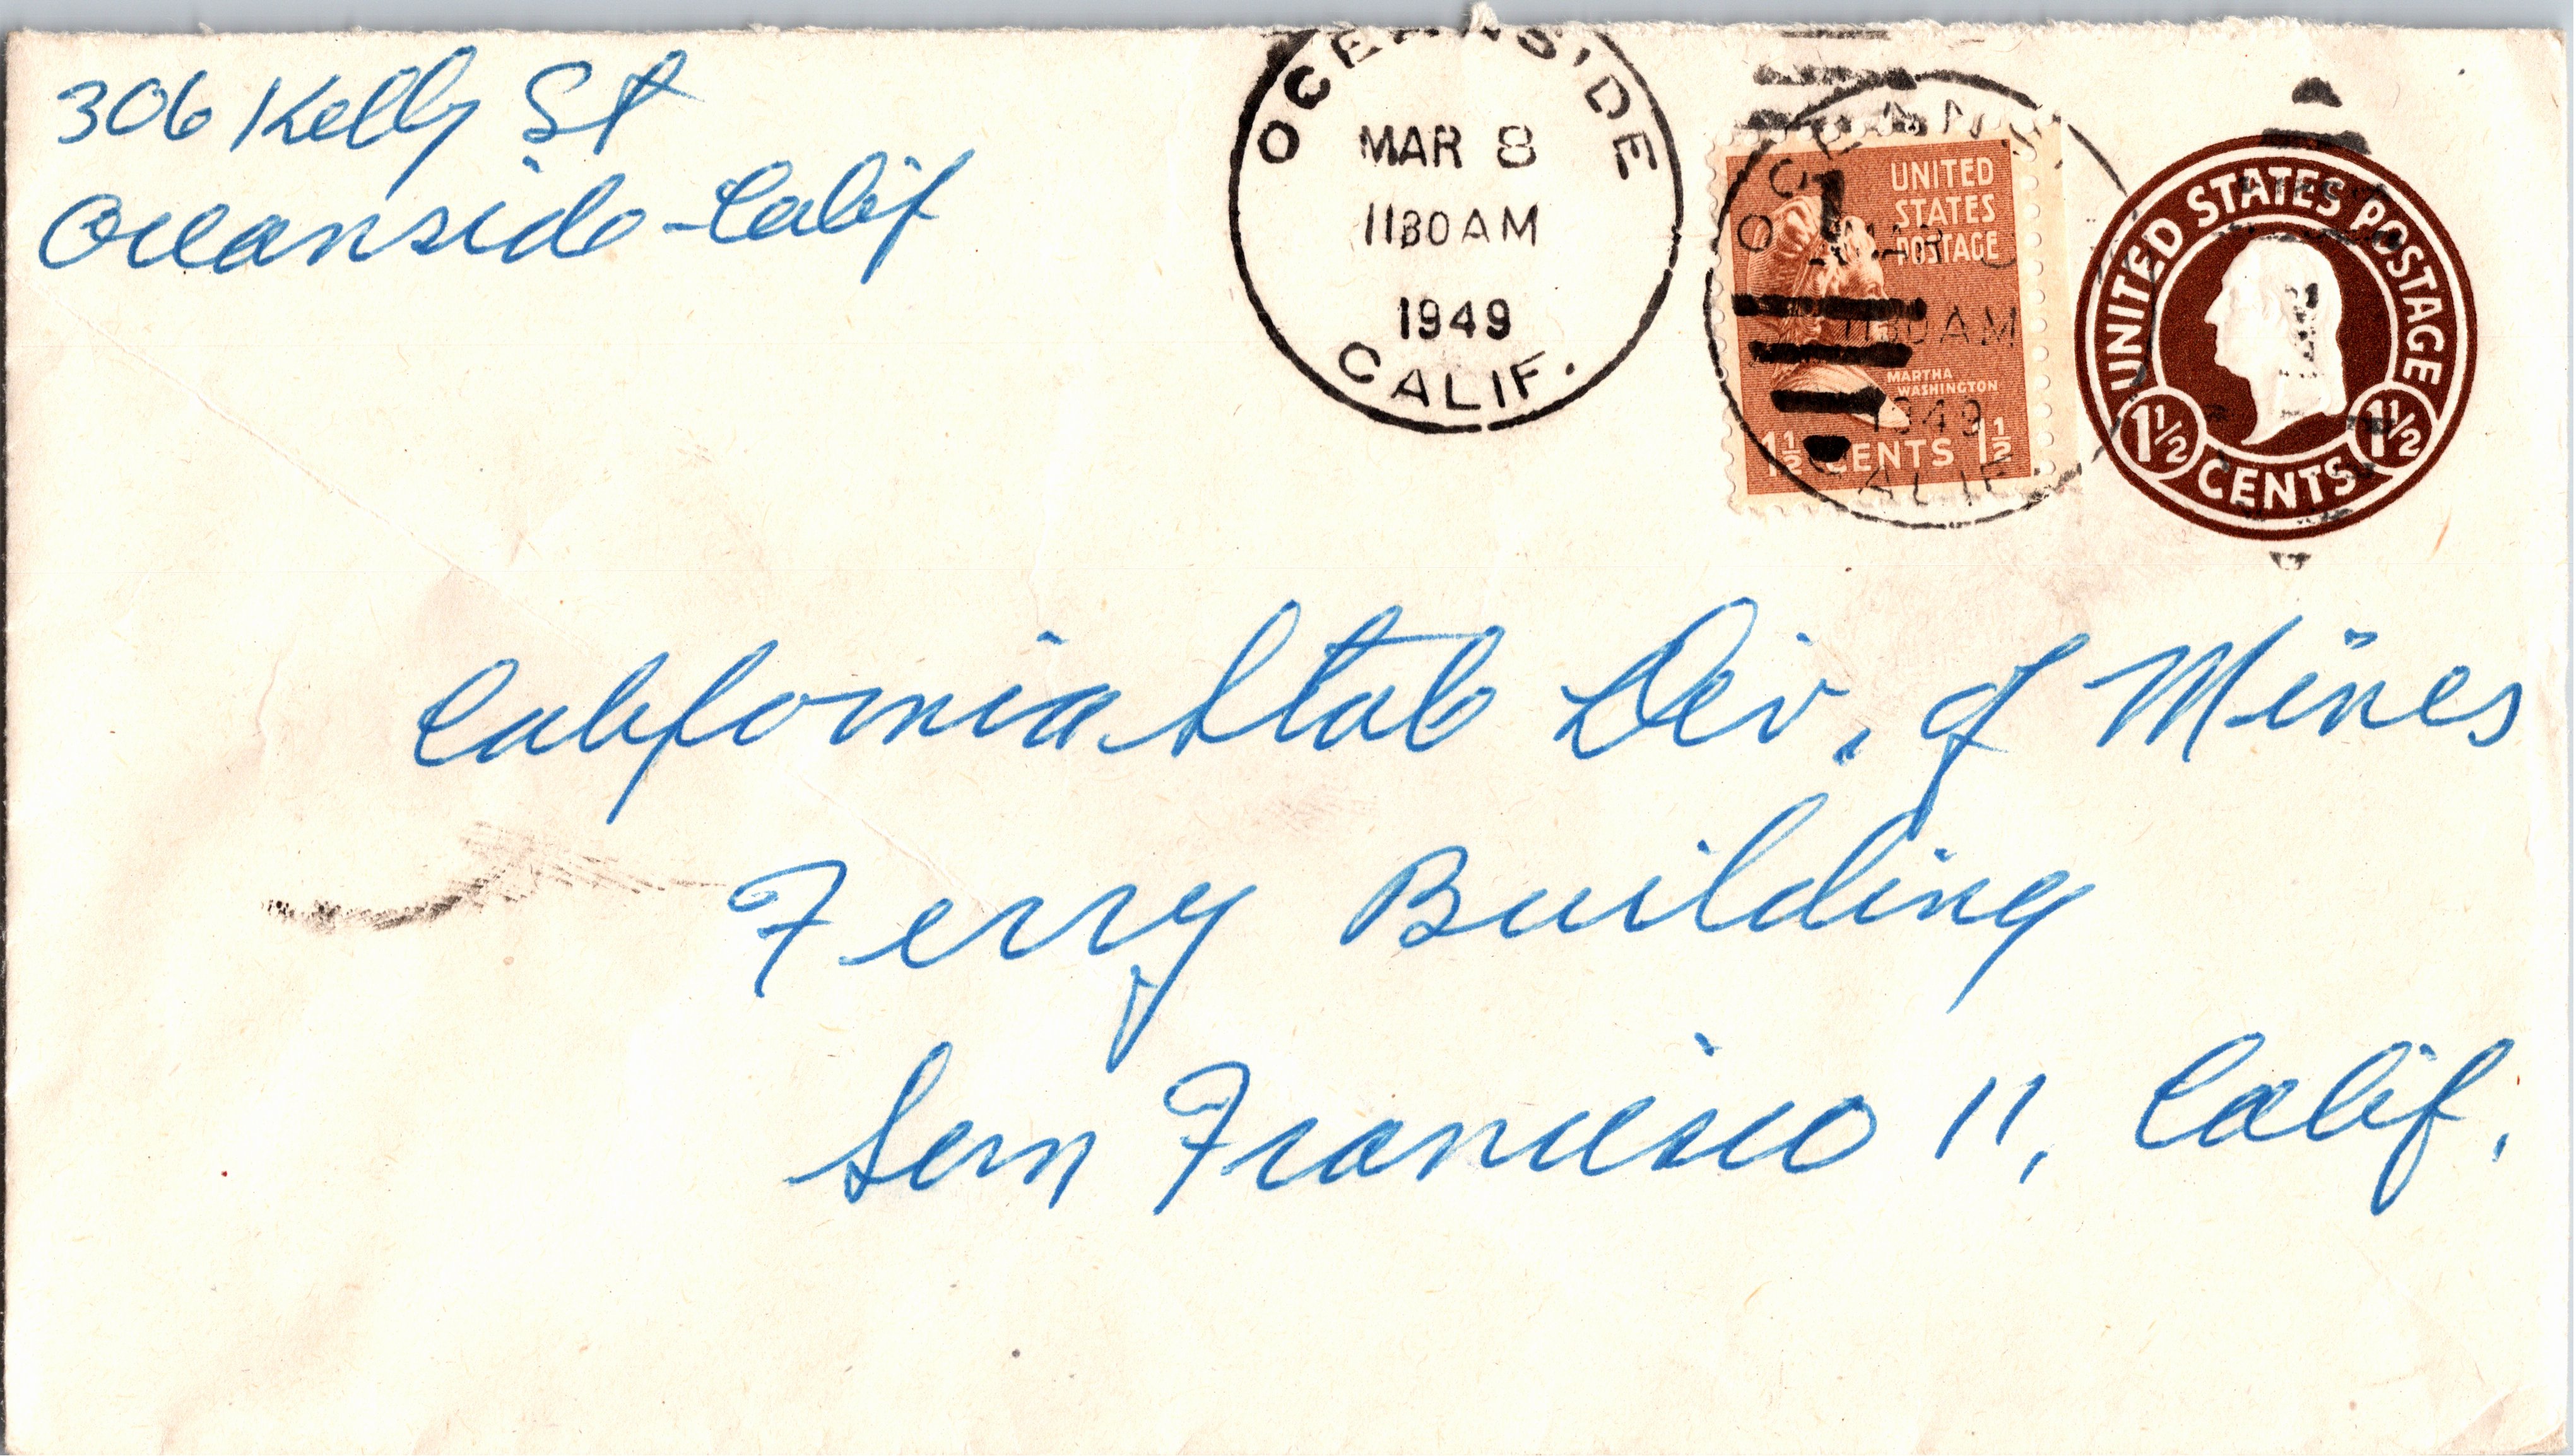 306 Kelly St
Oceanside - Calif
OCEANSIDE
MAR 8
1130 AM
1949
CALIF.
OCEANS
MAR
1130 AM
1949
CALIF
UNITED
STATES
POSTAGE
MARTHA
WASHINGTON
1½ CENTS 1½
UNITED STATES POSTAGE
1½ 1½
CENTS
California State Div. of Mines
Ferry Building
San Francisco 11, Calif.